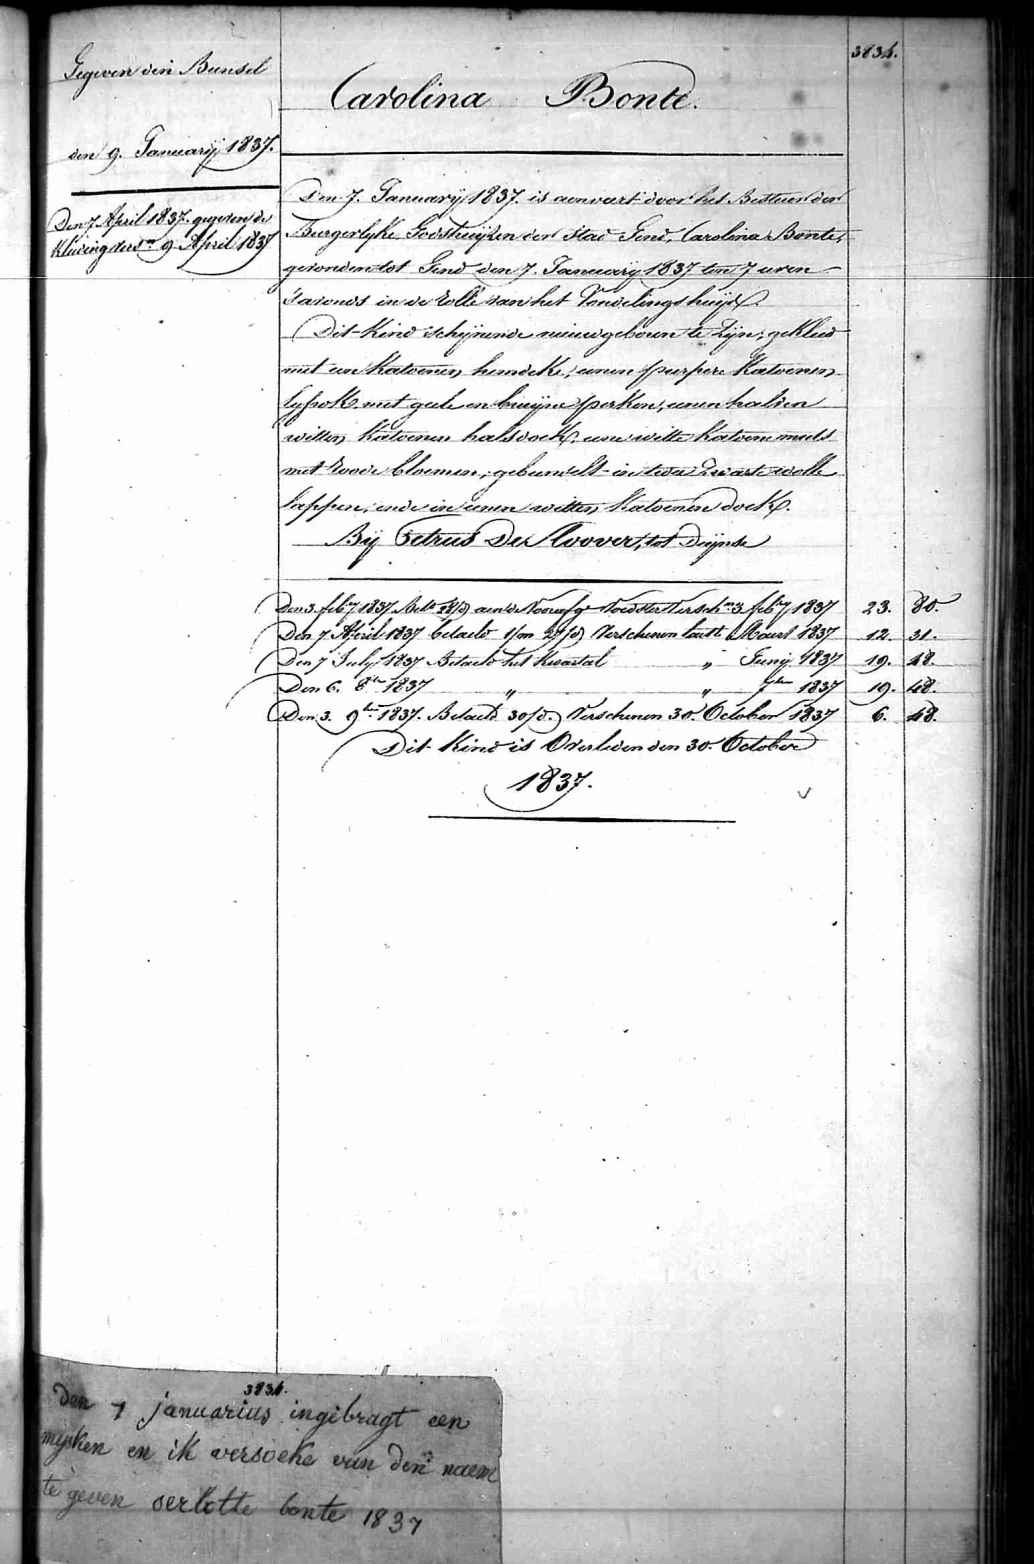 3834.
Gegeven den Bunsel
den 9. January 1837.
Den 7 April 1837. gegeven de
Kleeding ders.en 9 April 1837
Carolina Bonte.
Den 7. January 1837. is aenveert door het Bestuer der
Burgerlyke Godshuyzen der Stad Gend, Carolina Bonte,
gevonden tot Gend den 7. January 1837 ten 7 uren
s'avonds in de Rolle van het Vondelingshuys.
Dit Kind schijnende nieuwgeboren te zyn; gekleed
met een Katoenen hemdeke, eenen purpere Katoenen
lyfrok met geele en bruyne perken, eenen halven
witten Katoenen halsdoek, eene witte Katoene muts
met roode bloemen, gebunselt in twee zwarte wolle
lappen, ende in eenen witten Katoenen doek.
Bij Petrus De Cloover, tot Deynse
Den 3. feb.y 1837. aen de Voedster Versch.en 3 feb.y 1837 23. 80.
Den 7 April 1837 betaeld Verschenen Maert 1837 12. 31.
Den 7 July 1837 Betaeld het Kwartal „ Juny 1837 19. 48.
Den 6. 8.er 1837 „ „ 7.er 1837 19. 48.
Den 3. 9.er 1837. Betaeld 30/d. Verschenen 30. October 1837 6. 48.
Dit Kind is Overleden den 30. October
1837.
3834.
Den 7 januarius ingebragt een
mysken en ik versoeke van den naem
te geven serlotte bonte 1837